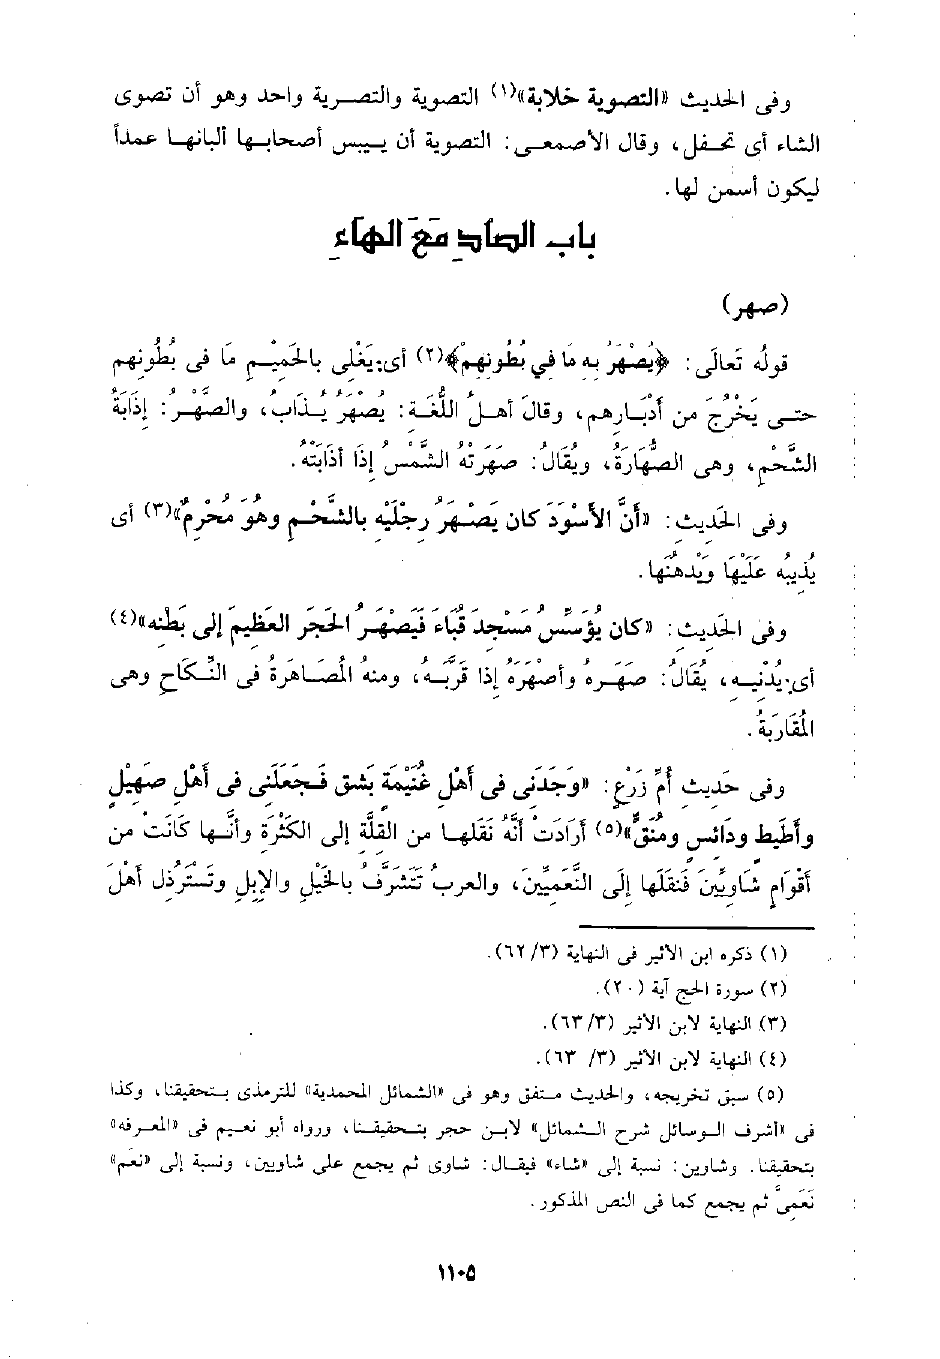 وفى الحديث «التصوية خلابة»(١) التصوية والتصرية واحد وهو أن تصوى
الشاء أى تحفل، وقال الأصمعى: التصوية أن ييبس أصحابها ألبانها عمداً
ليكون أسمن لها.
باب الصاد مع الهاء
(صهر)
قولُه تَعالَى: ﴿يُصْهَرُ بِهِ مَا فِي بُطُونِهِمْ﴾(٢) أى:يَغْلِى بالحَمِيْمِ مَا فى بُطُونِهم
حتـى يَخْرُجَ من أدْبَـارِهم، وقالَ أهـلُ اللُّغَـة: يُصْهَرُ يُـذَابُ، والصَّهْرُ: إذَابَةُ
الشَّحْمِ، وهى الصُّهَارَةُ، ويُقالُ: صَهَرَتْهُ الشَّمْسُ إذَا أذَابَتْه.
وفى الحَديثِ: «أنَّ الأسْوَدَ كان يَصْهَرُ رِجْلَيْه بالشَّحْمِ وهُوَ مُحْرِمٌ»(٣) أى
يُذِيبُه عَلَيْهَا ويَدْهنُها.
وفى الحَديثِ: «كان يُؤَسِّسُ مَسْجِدَ قُبَاء فَيَصْهَرُ الحَجَرَ العَظِيمَ إلى بَطْنِه»(٤)
أى:يُدْنِيـه، يُقَالُ: صَهَـره وأصْهَرَه إذا قَرَّبَـه، ومنه المُصَـاهَرة فى النِّـكَاحِ وهى
المُقَارَبَةُ.
وفى حَديثِ أُمِّ زَرْعٍ: «وَجَدَنِى فى أَهْلِ غُنَيْمَة بَشِق فَـجَعَلَنِى فى أَهْلِ صَهِيْلٍ
وأَطِيْطٍ ودَائسٍ ومُنَقٍّ»(٥) أرَادَتْ أنَّه نَقَلهـا من القِلَّة إلى الكَثْرَة وأنَّـها كَانَتْ من
أقْوَامٍ شَاوِيِّينَ فَنقَلَها إلَى النَّعَمِيِّينَ، والعربُ تَتَشرَّفُ بالخَيْلِ والإبِلِ وتَسْتَرْذِل أهْلَ
(١) ذكره ابن الأثير فى النهاية (٣/ ٦٢).
(٢) سورة الحج آية (٢٠).
(٣) النهاية لابن الأثير (٣/ ٦٣).
(٤) النهاية لابن الأثير (٣/ ٦٣).
(٥) سبق تخريجه، والحديث متفق وهو فى «الشمائل المحمدية» للترمذى بتحقيقنا، وكذا
فى «أشرف الوسائل شرح الشمائل» لابن حجر بتحقيقنا، ورواه أبو نعيم فى «المعرفه»
بتحقيقنا. وشاوين: نسبة إلى «شاء» فيقال: شاوى ثم يجمع على شاويين، ونسبة إلى «نعم»
نَعَمِىٌّ ثم يجمع كما فى النص المذكور.
١١٠٥